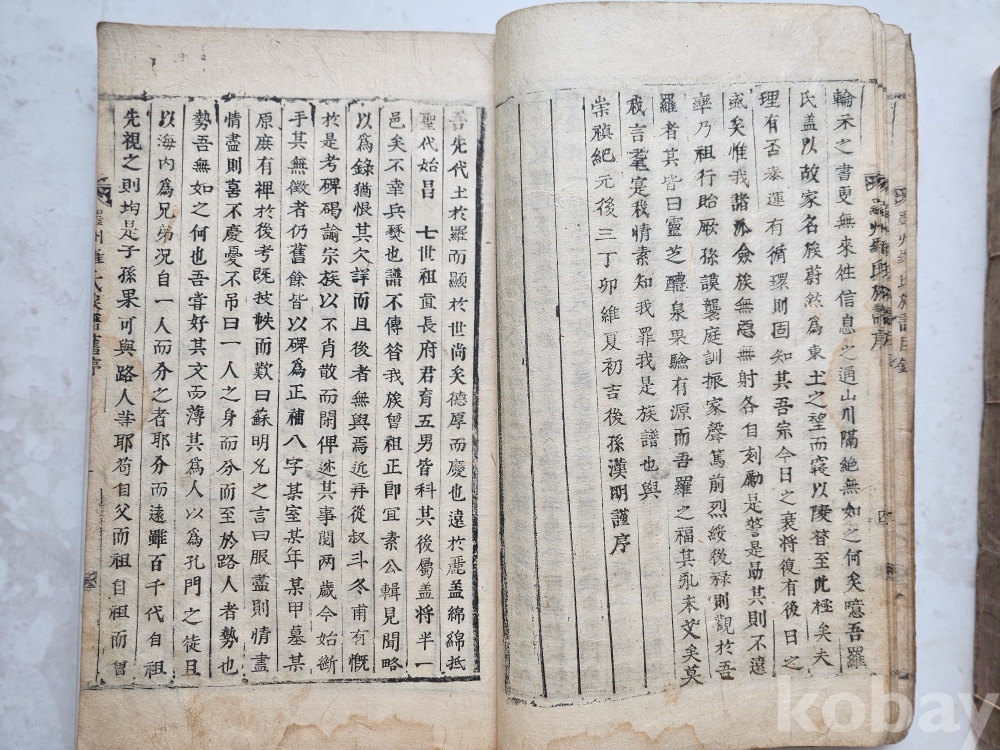 輪示之書更無來往信息之通山川隔絶無如之何矣噫吾羅
氏盖以故家名族蔚然為東土之望而寖以陵替至此極矣夫
理有否泰運有循環則固知其吾宗今日之衰將復有後日之
盛矣惟我諸派僉族無怠無射各自刻勵是誓是勗其則不遠
率乃祖行貽厥孫謨襲庭訓振家聲篤前烈綏後祿則觀於吾
羅者其皆曰靈芝醴泉果驗有源而吾羅之福其永未艾矣莫
我言耄寔我情素知我罪我是族譜也與
崇禎紀元後三丁卯維夏初吉後孫漢明謹序
羅州羅氏族譜序
吾先代土於羅而顯於世尚矣德厚而慶也遠於麗盖綿綿抵
聖代始昌 七世祖直長府君育五男皆科其後屬盖將半一
邑矣不幸兵燹也譜不傳昔我族曾祖正郎宜素公輯見聞略
以為錄猶恨其欠詳而且後者無與焉近再從叔斗冬甫有慨
於是考碑碣諭宗族以不肖散而閑俾述其事閱兩歲今始斷
手其無徵者仍舊餘皆以碑為正補八字某室某年某甲墓某
原庶有裨於後考既披帙而歎曰蘇明允之言曰服盡則情盡
情盡則喜不慶憂不吊曰一人之身而分而至於路人者勢也
勢吾無如之何也吾嘗好其文而薄其為人以為孔門之徒且
以海內為兄弟况自一人而分之者耶分而遠雖百千代自祖
先視之則均是子孫果可與路人等耶苟自父而祖自祖而曾
羅州羅氏族譜舊序
kobay